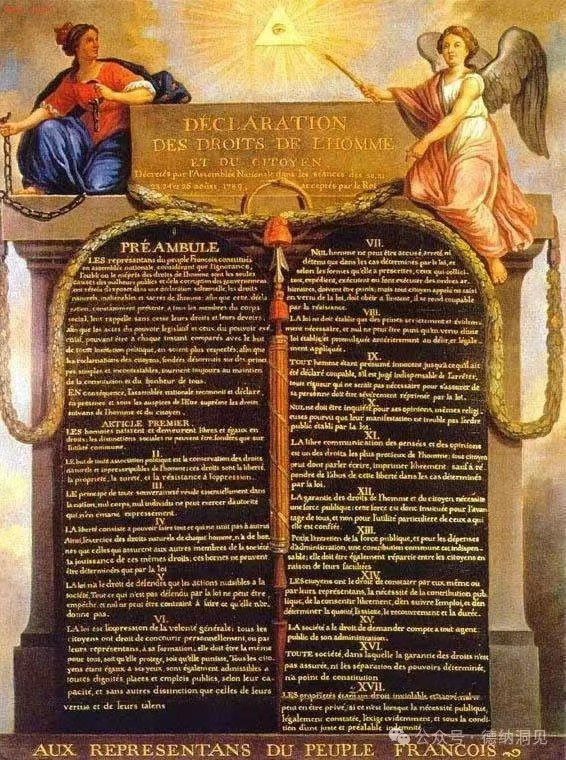 DÉCLARATION
DES DROITS DE L'HOMME
ET DU CITOYEN
Décrétés par l'Assemblée Nationale dans les séances des 20, 21
23, 24 et 26 août 1789, acceptés par le Roi
PRÉAMBULE
LES représentans du peuple François, constitués
en assemblée nationale, considérant que l'ignorance,
l'oubli ou le mépris des droits de l'homme sont les seules
causes des malheurs publics et de la corruption des gouvernemens
ont résolu d'exposer dans une déclaration solemnelle, les droits
naturels, inaliénables et sacrés de l'homme; afin que cette décla
ration, constamment présente à tous les membres du corps
social, leur rappelle sans cesse leurs droits et leurs devoirs;
afin que les actes du pouvoir législatif et ceux du pouvoir exé
cutif, pouvant être à chaque instant comparés avec le but
de toute institution politique, en soient plus respectés; afin que
les réclamations des citoyens, fondées désormais sur des princi
pes simples et incontestables, tournent toujours au maintien
de la constitution et du bonheur de tous.
EN conséquence, l'assemblée nationale reconnoît et déclare,
en présence et sous les auspices de l'Etre suprême les droits
suivans de l'homme et du citoyen.
ARTICLE PREMIER.
LES hommes naissent et demeurent libres et égaux en
droits; les distinctions sociales ne peuvent être fondées que sur
l'utilité commune.
II.
LE but de toute association politique est la conservation des droits
naturels et imprescriptibles de l'homme; ces droits sont la liberté,
la propriété, la sureté, et la résistance à l'oppression.
III.
LE principe de toute souveraineté réside essentiellement dans
la nation, nul corps, nul individu ne peut exercer d'autorité
qui n'en émane expressément.
IV.
LA liberté consiste à pouvoir faire tout ce qui ne nuit pas à autrui
Ainsi, l'exercice des droits naturels de chaque homme, n'a de bor
nes que celles qui assurent aux autres membres de la société
la jouissance de ces mêmes droits; ces bornes ne peuvent
être déterminées que par la loi
V.
LA loi n'a le droit de défendre que les actions nuisibles à la
société. Tout ce qui n'est pas défendu par la loi ne peut être
empêché, et nul ne peut être contraint à faire ce qu'elle n'or-
donne pas.
VI.
LA loi est l'expression de la volonté générale; tous les
citoyens ont droit de concourir personnellement, ou par
leurs représentans, à sa formation; elle doit être la même
pour tous, soit qu'elle protège, soit qu'elle punisse. Tous les cito
yens étant égaux à ses yeux, sont également admissibles à
toutes dignités, places et emplois publics, selon leur ca
pacité, et sans autres distinction que celles de leurs
vertus et de leurs talens
VII.
NUL homme ne peut être accusé, arreté, ni
détenu que dans les cas déterminés par la loi, et
selon les formes qu'elle a prescrites, ceux qui sollici
tent, expédient, exécutent ou font exécuter des ordres ar-
bitraires, doivent être punis; mais tout citoyen appelé ou saisi
en vertu de la loi, doit obéir à l'instant, il se rend coupable
par la résistance.
VIII.
LA loi ne doit établir que des peines strictement et évidem
ment nécessaire, et nul ne peut être puni qu'en vertu d'une
loi établie et promulguée antérieurement au délit, et légale
ment appliquée.
IX.
TOUT homme étant présumé innocent jusqu'à ce qu'il ait
été déclaré coupable, s'il est jugé indispensable de l'arrêter,
toute rigueur qui ne serait pas nécessaire pour s'assurer de
sa personne doit être sévèrement réprimée par la loi.
X.
NUL ne doit être inquiété pour ses opinions, mêmes religi
euses pourvu que leur manifestation ne trouble pas l'ordre
public établi par la loi.
XI.
LA libre communication des pensées et des opinions
est un des droits les plus precieux de l'homme; tout citoyen
peut donc parler écrire, imprimer librement sauf à ré
pondre de l'abus de cette liberté dans les cas déterminés
par la loi.
XII.
LA garantie des droits de l'homme et du citoyen nécessite
une force publique; cette force est donc instituée pour l'avan
tage de tous, et non pour l'utilité particulière de ceux a qui
elle est confiée.
XIII.
POUR l'entretien de la force publique, et pour les dépenses
d'administration, une contribution commune est indispen-
sable; elle doit être également répartie entre les citoyens en
raison de leurs facultées
XIV.
LES citoyens ont le droit de constater par eux même ou
par leurs représentans, la nécessité de la contribution pub
lique, de la consentir librement, d'en suivre l'emploi, et d'en
déterminer la quotité, l'assiette, le recouvrement et la durée.
XV.
LA société a le droit de demander compte a tout agent
public de son administration.
XVI.
TOUTE société, dans laquelle la garantie des droits n'est
pas assurée, ni la séparation des pouvoirs déterminée,
n'a point de constitution
XVII.
LES propriétés étant un droit inviolable et sacré, nul ne
peut en être privé, si ce n'est lorsque la nécessité publique,
légalement constatée, l'exige évidemment, et sous la condi
tion d'une juste et préalable indemnité.
AUX REPRESENTANS DU PEUPLE FRANCOIS
公众号 · 德纳洞见